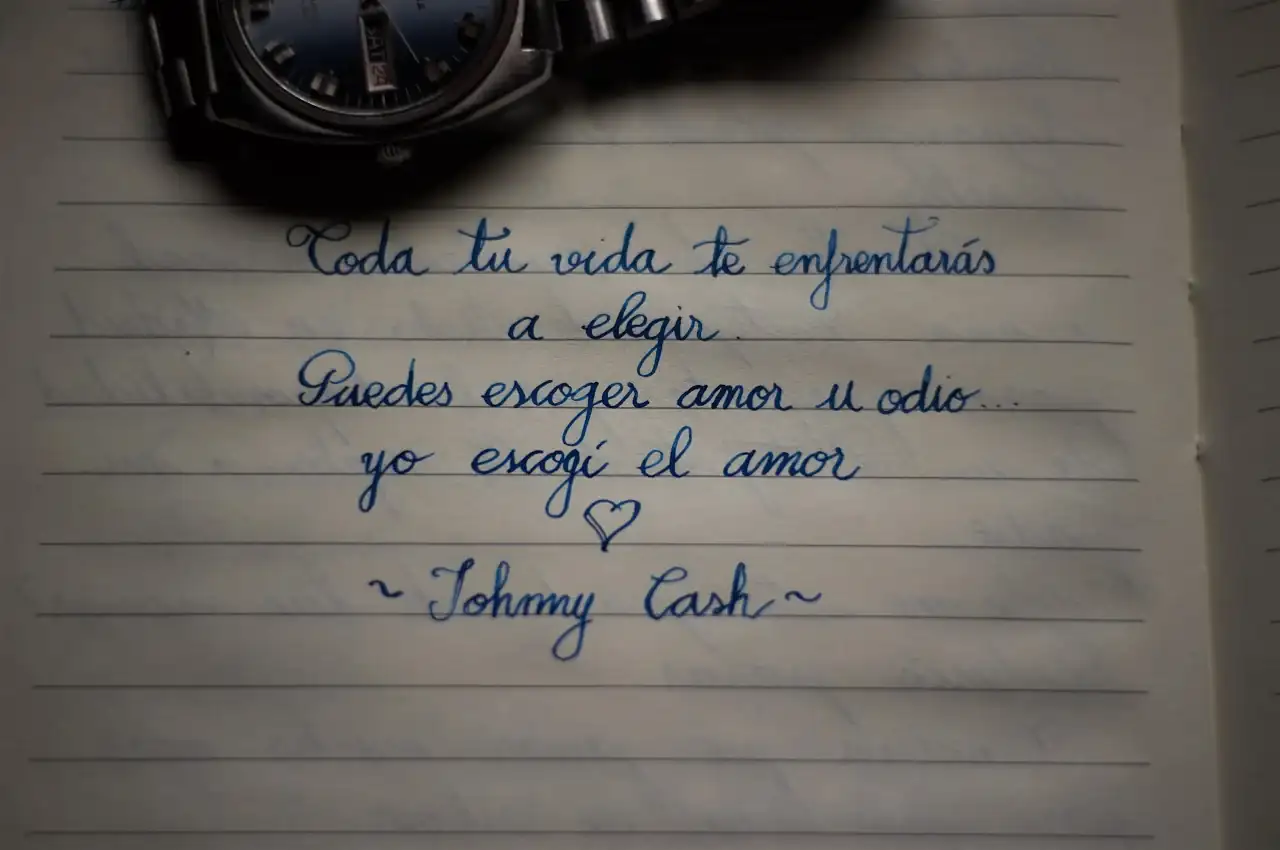 SAT 24
Toda tu vida te enfrentarás
a elegir.
Puedes escoger amor u odio...
yo escogí el amor
~ Johnny Cash ~